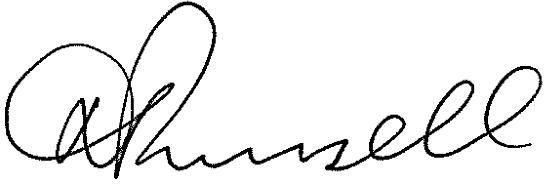 A Russell